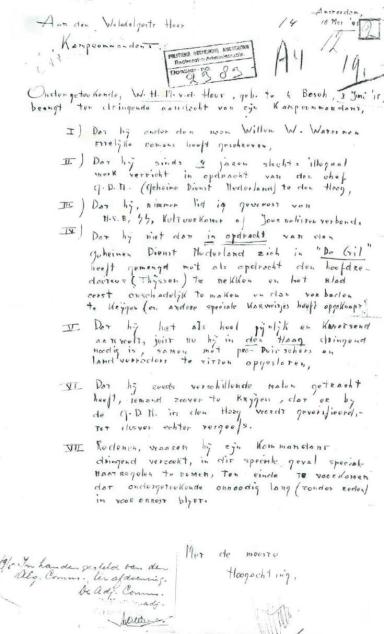 Amsterdam,
18 Mei '45
Aan den Weledelgestr. Heer
Kampcommandant.
POLITIEKE RECHERCHE AMSTERDAM
Dossier no.
9383
A4
19.
2
Ondergeteekende, W.H.M. v.d. Hout, geb. te 's Bosch, 3 Juni '15
brengt ter dringende aandacht van zijn Kampcommandant,
I) Dat hij onder den naam Willem W. Waterman
eerlijke romans heeft geschreven,
II) Dat hij sinds 4 jaren slechts illegaal
werk verricht in opdracht van den chef
G.D.N. (Geheime Dienst Nederland) te den Haag,
III) Dat hij nimmer lid is geweest van
N.S.B., SS, Kultuurkamer of Journalistenverbond.
IV) Dat hij niet dan in opdracht van den
Geheimen Dienst Nederland zich in "De Gil"
heeft gemengd met als opdracht den hoofdre-
dacteur (Thijssen) te nekken en het blad
eerst onschadelijk te maken en dan verboden
te krijgen (en andere speciale karweitjes heeft opgeknapt)
V. Dat hij het als heel pijnlijk en
aanvoelt, juist nu hij in den Haag dringend
noodig is, samen met pro-Duitschers en
landverraders te zitten opgesloten,
VI Dat hij reeds verschillende malen getracht
heeft, iemand zoover te krijgen, dat er bij
de G.D.N. in den Haag werdt geverifieerd,
tot dusver echter vergeefs.
VII Redenen, waarom hij zijn Kommandant
dringend verzoekt, in dit speciale geval speciale
maatregelen te nemen, ten einde te voorkomen
dat ondergeteekende onnoodig lang (zonder reden)
in voorarrest blijve.
Met de meeste
Hoogachting.
In handen gesteld van den
Alg. Comm.
De Adj. Comm.